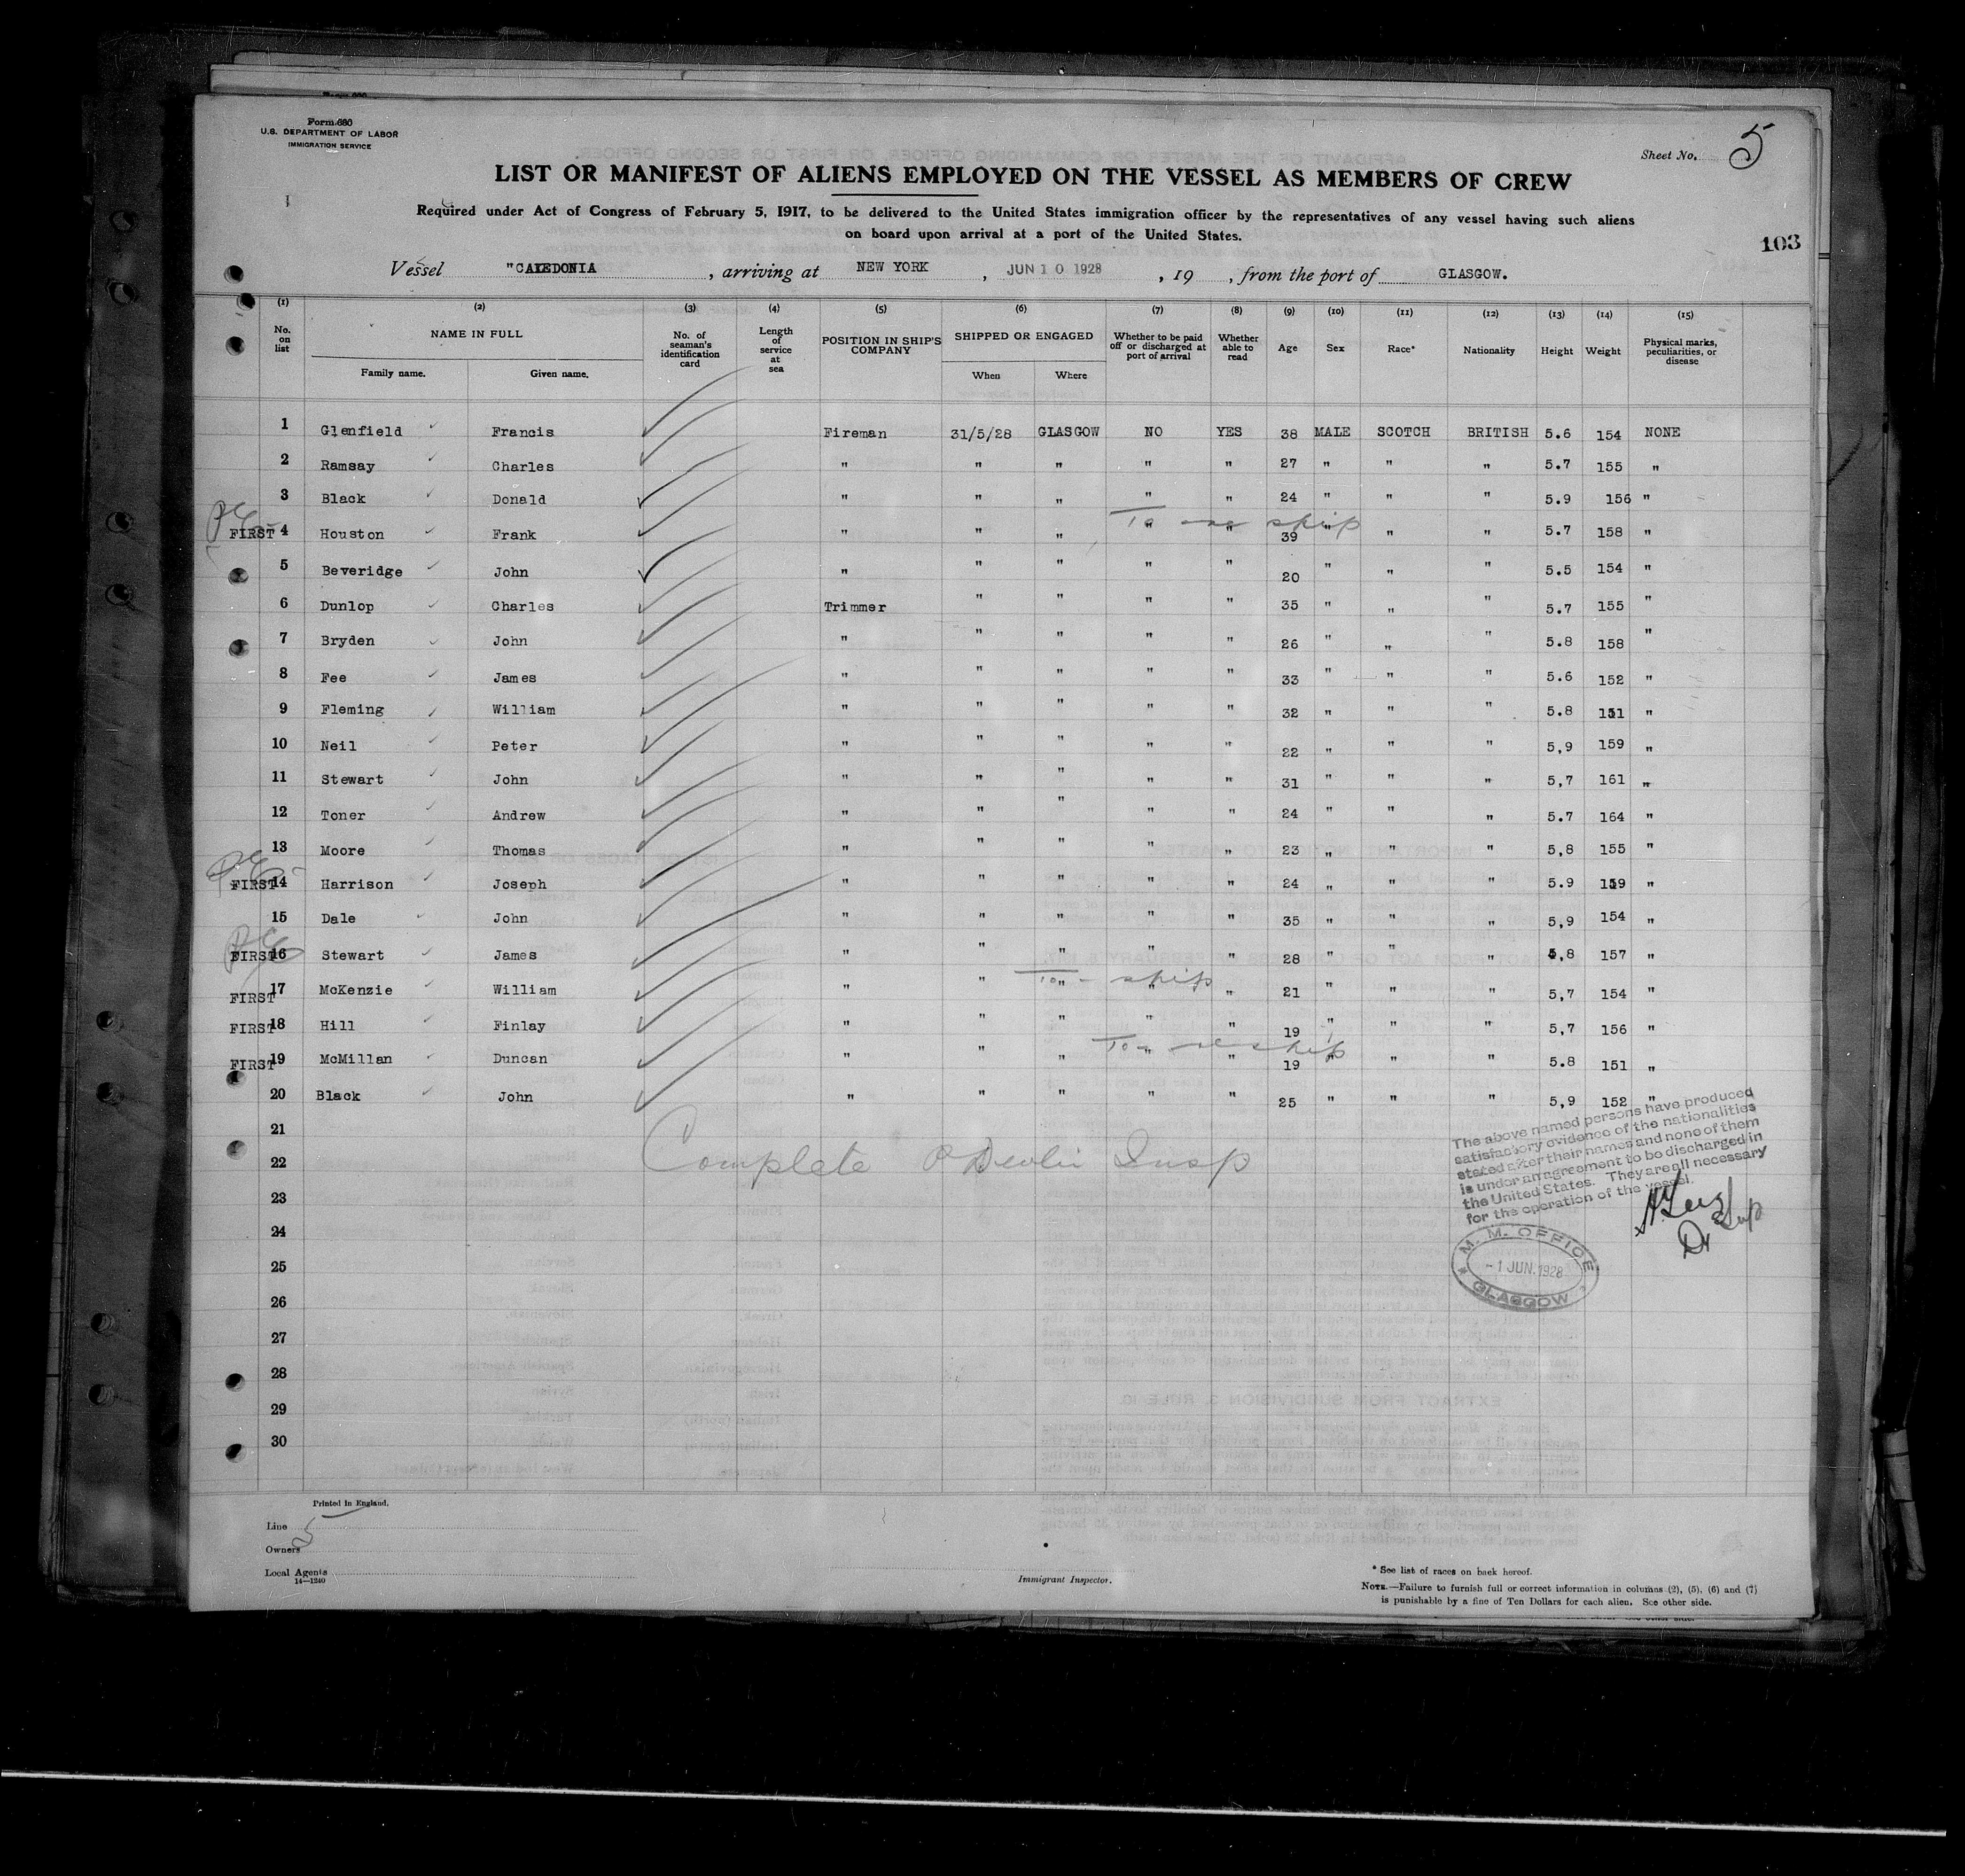 Form 680
U.S. DEPARTMENT OF LABOR
IMMIGRATION SERVICE
Sheet No. 5
LIST OR MANIFEST OF ALIENS EMPLOYED ON THE VESSEL AS MEMBERS OF CREW
Required under Act of Congress of February 5, 1917, to be delivered to the United States immigration officer by the representatives of any vessel having such aliens
on board upon arrival at a port of the United States.
103
Vessel "CALEDONIA , arriving at NEW YORK , JUN 10 1928 , 19 , from the port of GLASGOW.
(1) (2) (3) (4) (5) (6) (7) (8) (9) (10) (11) (12) (13) (14) (15)
No. on list NAME IN FULL Family name. Given name. No. of seaman's identification card Length of service at sea POSITION IN SHIP'S COMPANY SHIPPED OR ENGAGED When Where Whether to be paid off or discharged at port of arrival Whether able to read Age Sex Race* Nationality Height Weight Physical marks, peculiarities, or disease
1 Glenfield Francis Fireman 31/5/28 GLASGOW NO YES 38 MALE SCOTCH BRITISH 5.6 154 NONE
2 Ramsay Charles " " " " " 27 " " " 5.7 155 "
3 Black Donald " " " " " 24 " " " 5.9 156 "
FIRST 4 Houston Frank " " " " " 39 " " " 5.7 158 "
5 Beveridge John " " " " " 20 " " " 5.5 154 "
6 Dunlop Charles Trimmer " " " " 35 " " " 5.7 155 "
7 Bryden John " " " " " 26 " " " 5.8 158 "
8 Fee James " " " " " 33 " " " 5.6 152 "
9 Fleming William " " " " " 32 " " " 5.8 151 "
10 Neil Peter " " " " " 22 " " " 5,9 159 "
11 Stewart John " " " " " 31 " " " 5,7 161 "
12 Toner Andrew " " " " " 24 " " " 5.7 164 "
13 Moore Thomas " " " " " 23 " " " 5,8 155 "
FIRST 14 Harrison Joseph " " " " " 24 " " " 5.9 159 "
15 Dale John " " " " " 35 " " " 5,9 154 "
FIRST 16 Stewart James " " " " " 28 " " " 5,8 157 "
FIRST 17 McKenzie William " " " " " 21 " " " 5,7 154 "
FIRST 18 Hill Finlay " " " " " 19 " " " 5,7 156 "
FIRST 19 McMillan Duncan " " " " " 19 " " " 5.8 151 "
20 Black John " " " " " 25 " " " 5,9 152 "
21
22 Complete Insp
23
24
25
26
27
28
29
30
The above named persons have produced
satisfactory evidence of the nationalities
stated after their names and none of them
is under an agreement to be discharged in
the United States. They are all necessary
for the operation of the vessel.
M. M. OFFICE
-1 JUN.1928
GLASGOW
Printed in England.
Line
5
Owners
Local Agents
14—1240
Immigrant Inspector.
* See list of races on back hereof.
NOTE.—Failure to furnish full or correct information in columns (2), (5), (6) and (7)
is punishable by a fine of Ten Dollars for each alien. See other side.